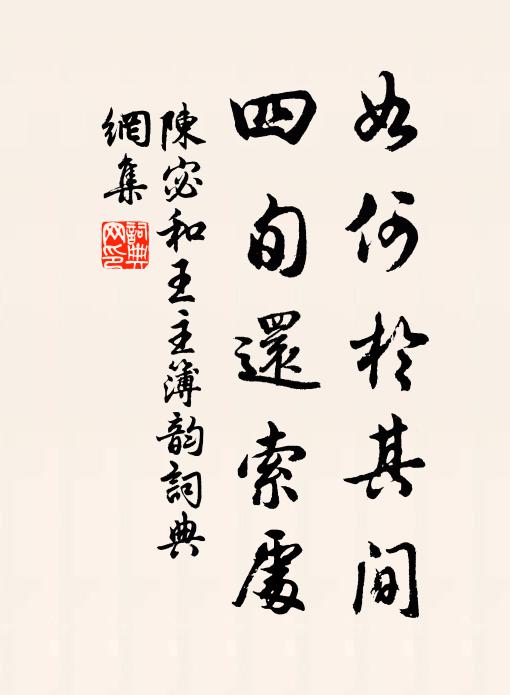 如何於其间
四旬還索處
陳宓和王主簿韵詞典
網集
詞典
网印